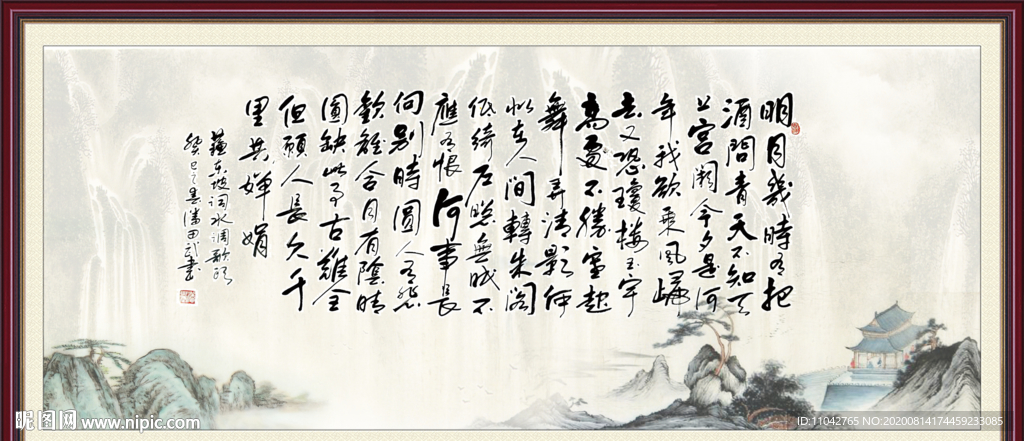 明月幾時有把
酒問青天不知天
上宮闕今夕是何
年我欲乘風歸
去又恐瓊樓玉宇
高處不勝寒起
舞弄清影何
似在人間轉朱閣
低綺戶照無眠不
應有恨何事長
向別時圓人有悲
歡離合月有陰晴
圓缺此事古難全
但願人長久千
里共嬋娟
蘓东坡词水调歌頭
癸巳之春潘田武書
昵图网 www.nipic.com
ID:11042765 NO:20200814174459233085